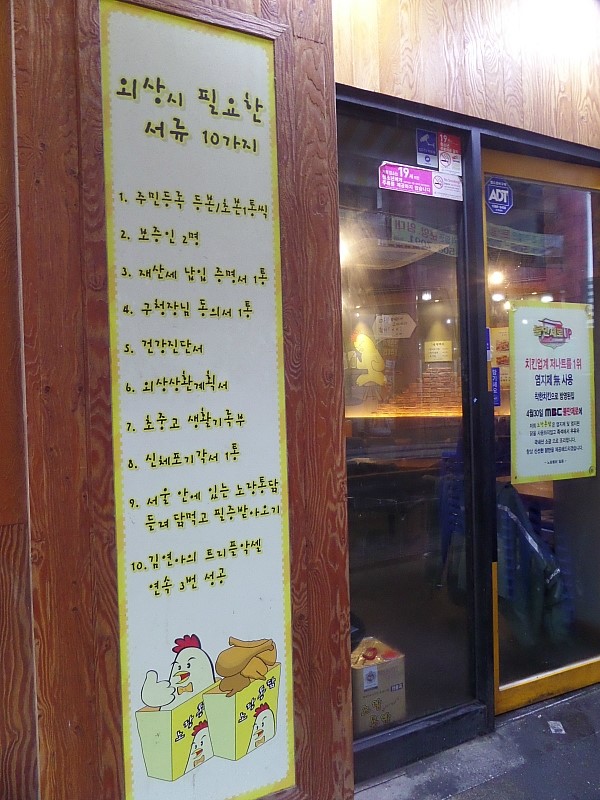 외상시 필요한
서류 10가지
1. 주민등록 등본/초본1통씩
2. 보증인 2명
3. 재산세 납입 증명서 1통
4. 구청장님 동의서 1통
5. 건강진단서
6. 외상상환계획서
7. 초중고 생활기록부
8. 신체포기각서 1통
9. 서울 안에 있는 노랑통닭
들려 닭먹고 필증받아오기
10. 김연아의 트리플악셀
연속 3번 성공
노랑통닭
19세
ADT
치킨업계 저나트륨 1위
염지제 無 사용
착한치킨으로 방영된집
4월30일 MBC 불만제로에